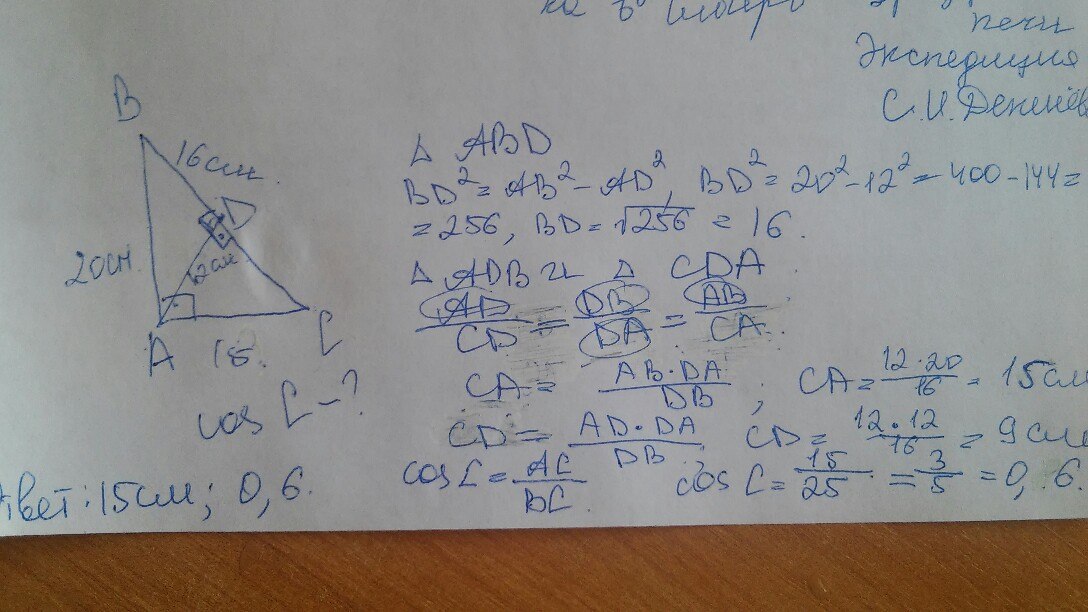 печи
Экспедиция
С.И.
B
16см
D
20см.
12см
A 15.
C
cos C - ?
△ ABD
BD² = AB² - AD², BD² = 20² - 12² = 400 - 144 =
= 256, BD = √256 = 16.
△ ADB ~ △ CDA
AD/CD = DB/DA = AB/CA.
CA = AB·DA/DB ; CA = 12·20/16 = 15см
CD = AD·DA/DB CD = 12·12/16 = 9см
cos C = AC/BC. cos C = 15/25 = 3/5 = 0,6.
Ответ: 15см; 0,6.